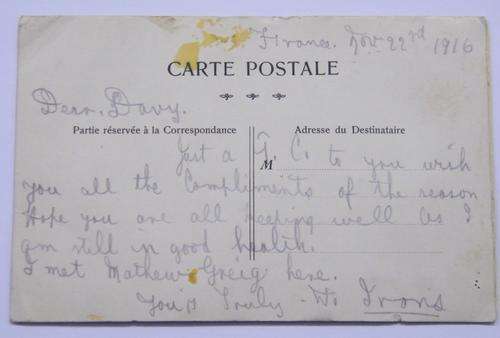 France. Nov 22nd 1916
CARTE POSTALE
Dear Davy.
Partie réservée à la Correspondance
Adresse du Destinataire
M
Just a P.C. to you wish
you all the Compliments of the season
Hope you are all keeping well as I
am still in good health.
I met Mathew Greig here.
Yours Truly Wm Irons